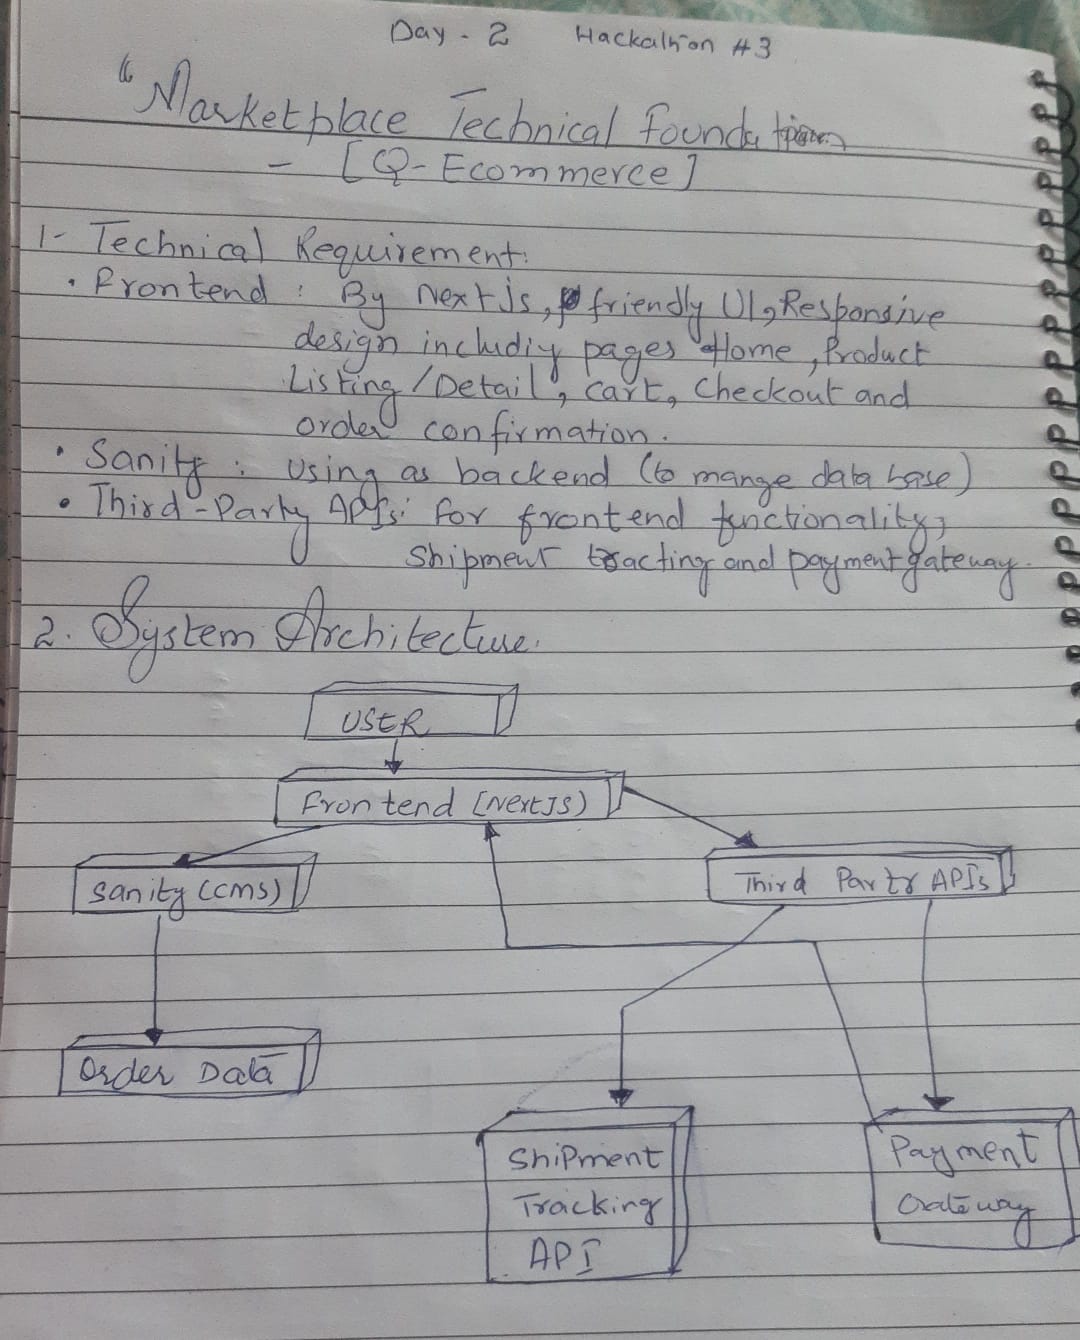 Day - 2 Hackathon #3
"Marketplace Technical Foundation
- [Q-Ecommerce]
1- Technical Requirement:
• Frontend : By Next Js, friendly UI, Responsive
design includiy pages Home, Product
Listing / Detail, Cart, Checkout and
order confirmation.
• Sanity : Using as backend (to mange data base)
• Third-Party APIs: for frontend functionality,
Shipment tracting and payment gateway.
2. System Architecture.
USER
Frontend [NextJS)
Sanity (CMS)
Third Party APIs
Order Data
Shipment
Tracking
API
Payment
Gateway